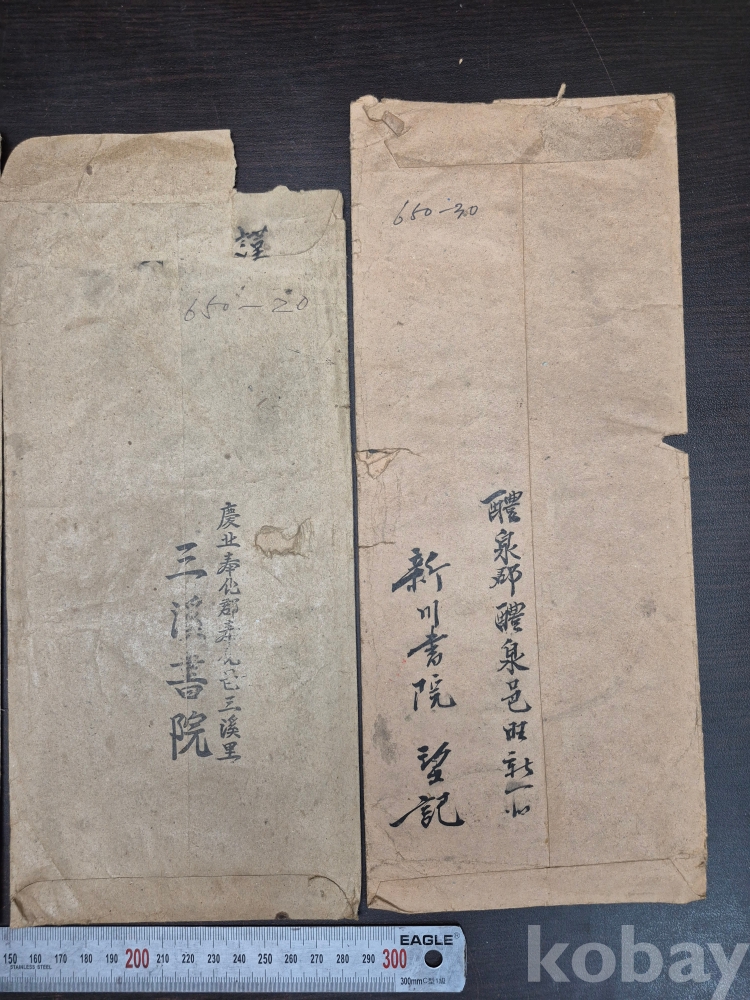 謹
650-20
慶北奉化郡奉化邑三溪里
三溪書院
650-30
醴泉郡醴泉邑旺新
新川書院 望記
150 160 170 180 190 200 210 220 230 240 250 260 270 280 290 300
STAINLESS STEEL
EAGLE
300mm
kobay